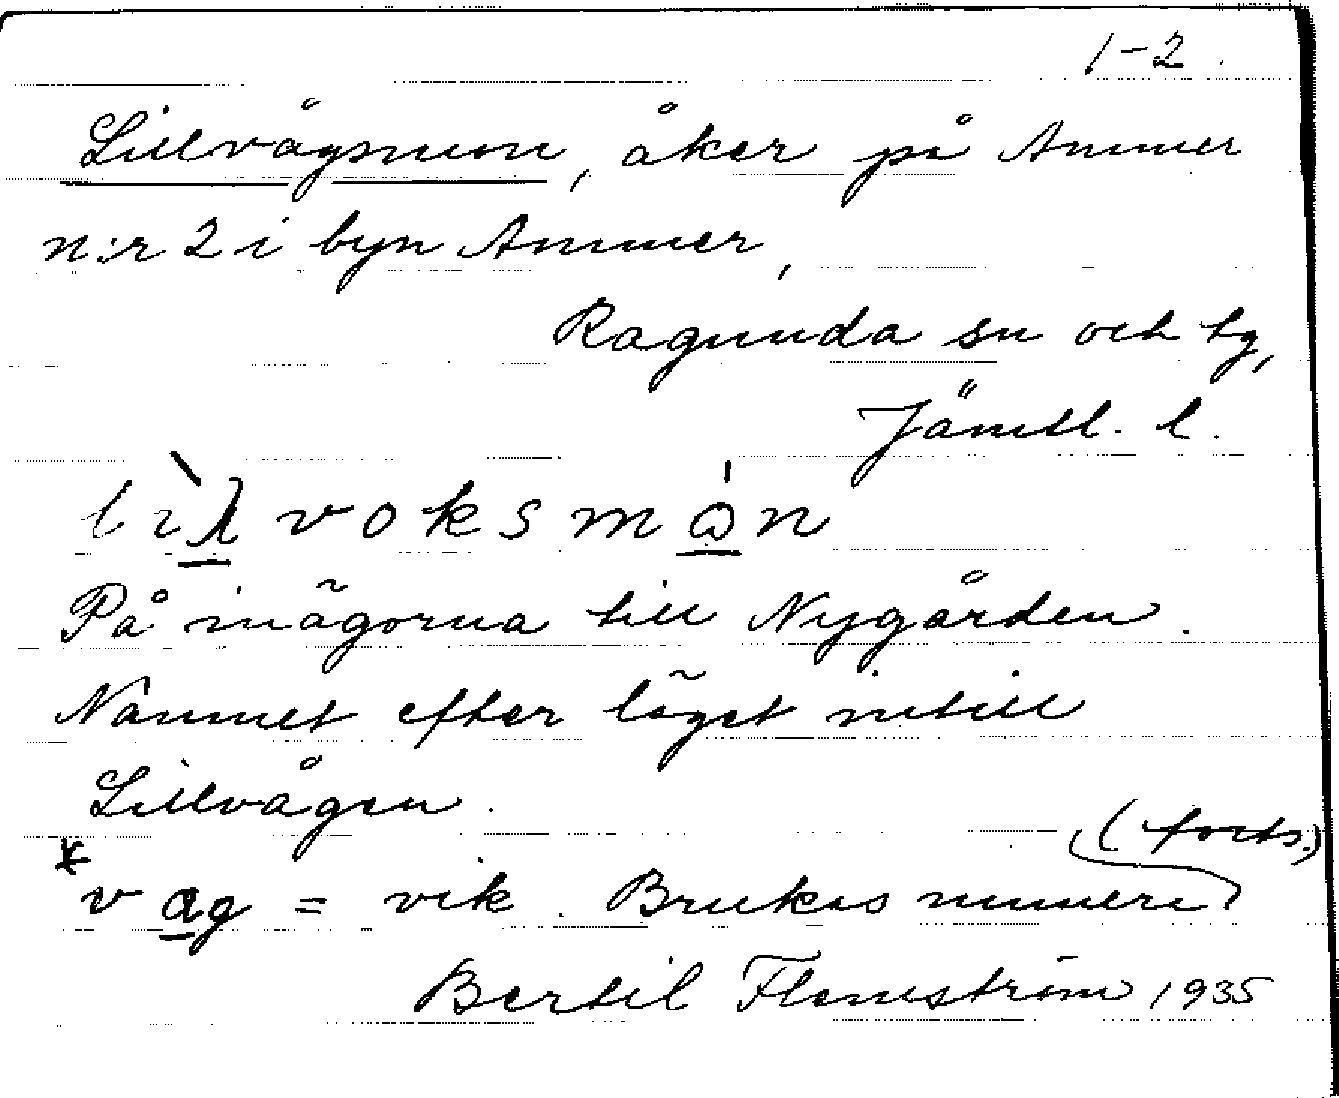 1-2.
Lillvågsmon, åker på Ammer
n:r 2 i byn Ammer,
Ragunda sn och tg,
Jämtl. l.
lìλ voksmòn
På inägorna till Nygården.
Namnet efter läget intill
Lillvågen.
(forts.)
*vag = vik. Brukas numera
Bertil Flemström 1935